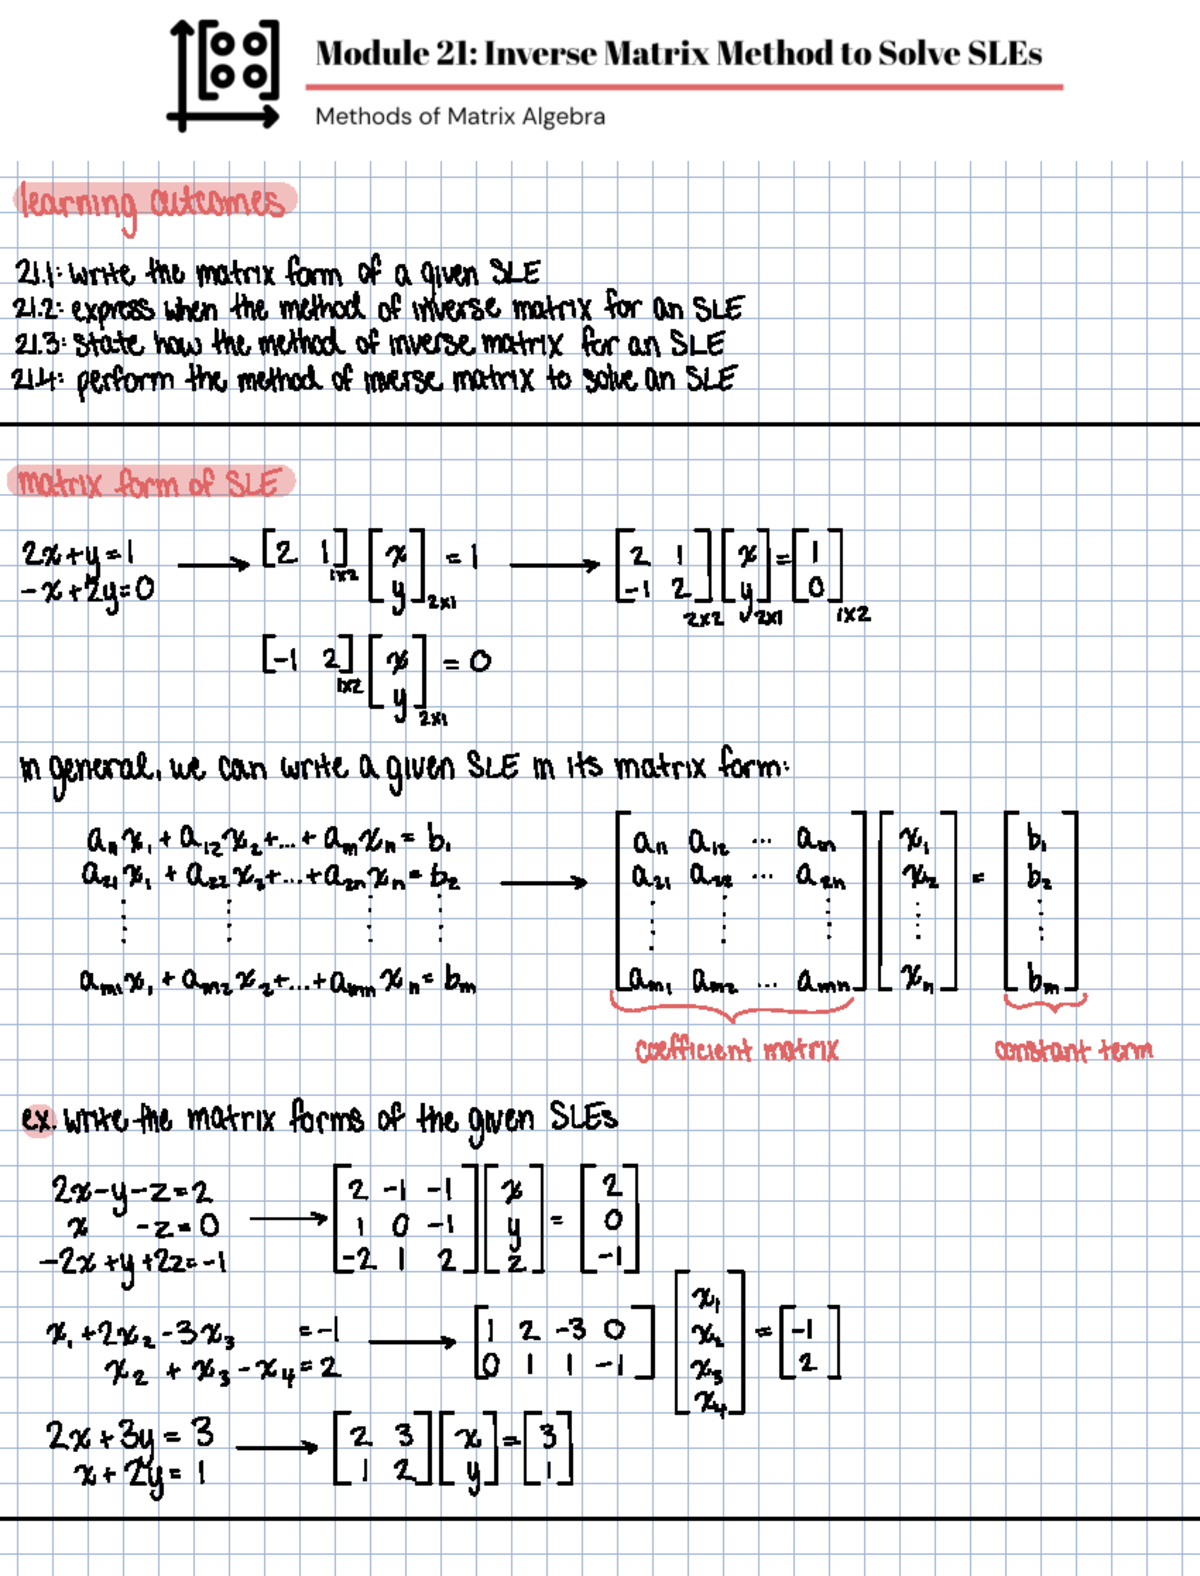 Module 21: Inverse Matrix Method to Solve SLEs
Methods of Matrix Algebra
learning outcomes
21.1: write the matrix form of a given SLE
21.2: express when the method of inverse matrix for an SLE
21.3: state how the method of inverse matrix for an SLE
21.4: perform the method of inverse matrix to solve an SLE
matrix form of SLE
2x+y=1 → [2 1]1x2 [x y]2x1 = 1 → [2 1; -1 2]2x2 [x y]2x1 = [1 0]1x2
-x+2y=0
[-1 2]1x2 [x y]2x1 = 0
in general, we can write a given SLE in its matrix form:
a₁₁x₁ + a₁₂x₂+...+ a₁ₙxₙ = b₁ [a₁₁ a₁₂ ... a₁ₙ] [x₁] [b₁]
a₂₁x₁ + a₂₂x₂+...+a₂ₙxₙ = b₂ → [a₂₁ a₂₂ ... a₂ₙ] [x₂] = [b₂]
⋮ ⋮ ⋮ ⋮ ⋮ ⋮ ⋮ ⋮ ⋮
aₘ₁x₁ + aₘ₂x₂+...+aₘₙxₙ = bₘ [aₘ₁ aₘ₂ ... aₘₙ] [xₙ] [bₘ]
coefficient matrix constant term
ex. write the matrix forms of the given SLEs
2x-y-z=2 [2 -1 -1] [x] [2]
x -z=0 → [1 0 -1] [y] = [0]
-2x+y+2z=-1 [-2 1 2] [z] [-1]
x₁+2x₂-3x₃ =-1 → [1 2 -3 0] [x₁ x₂ x₃ x₄] = [-1]
x₂ + x₃-x₄=2 [0 1 1 -1] [2]
2x+3y = 3 → [2 3] [x] = [3]
x+2y = 1 [1 2] [y] [1]